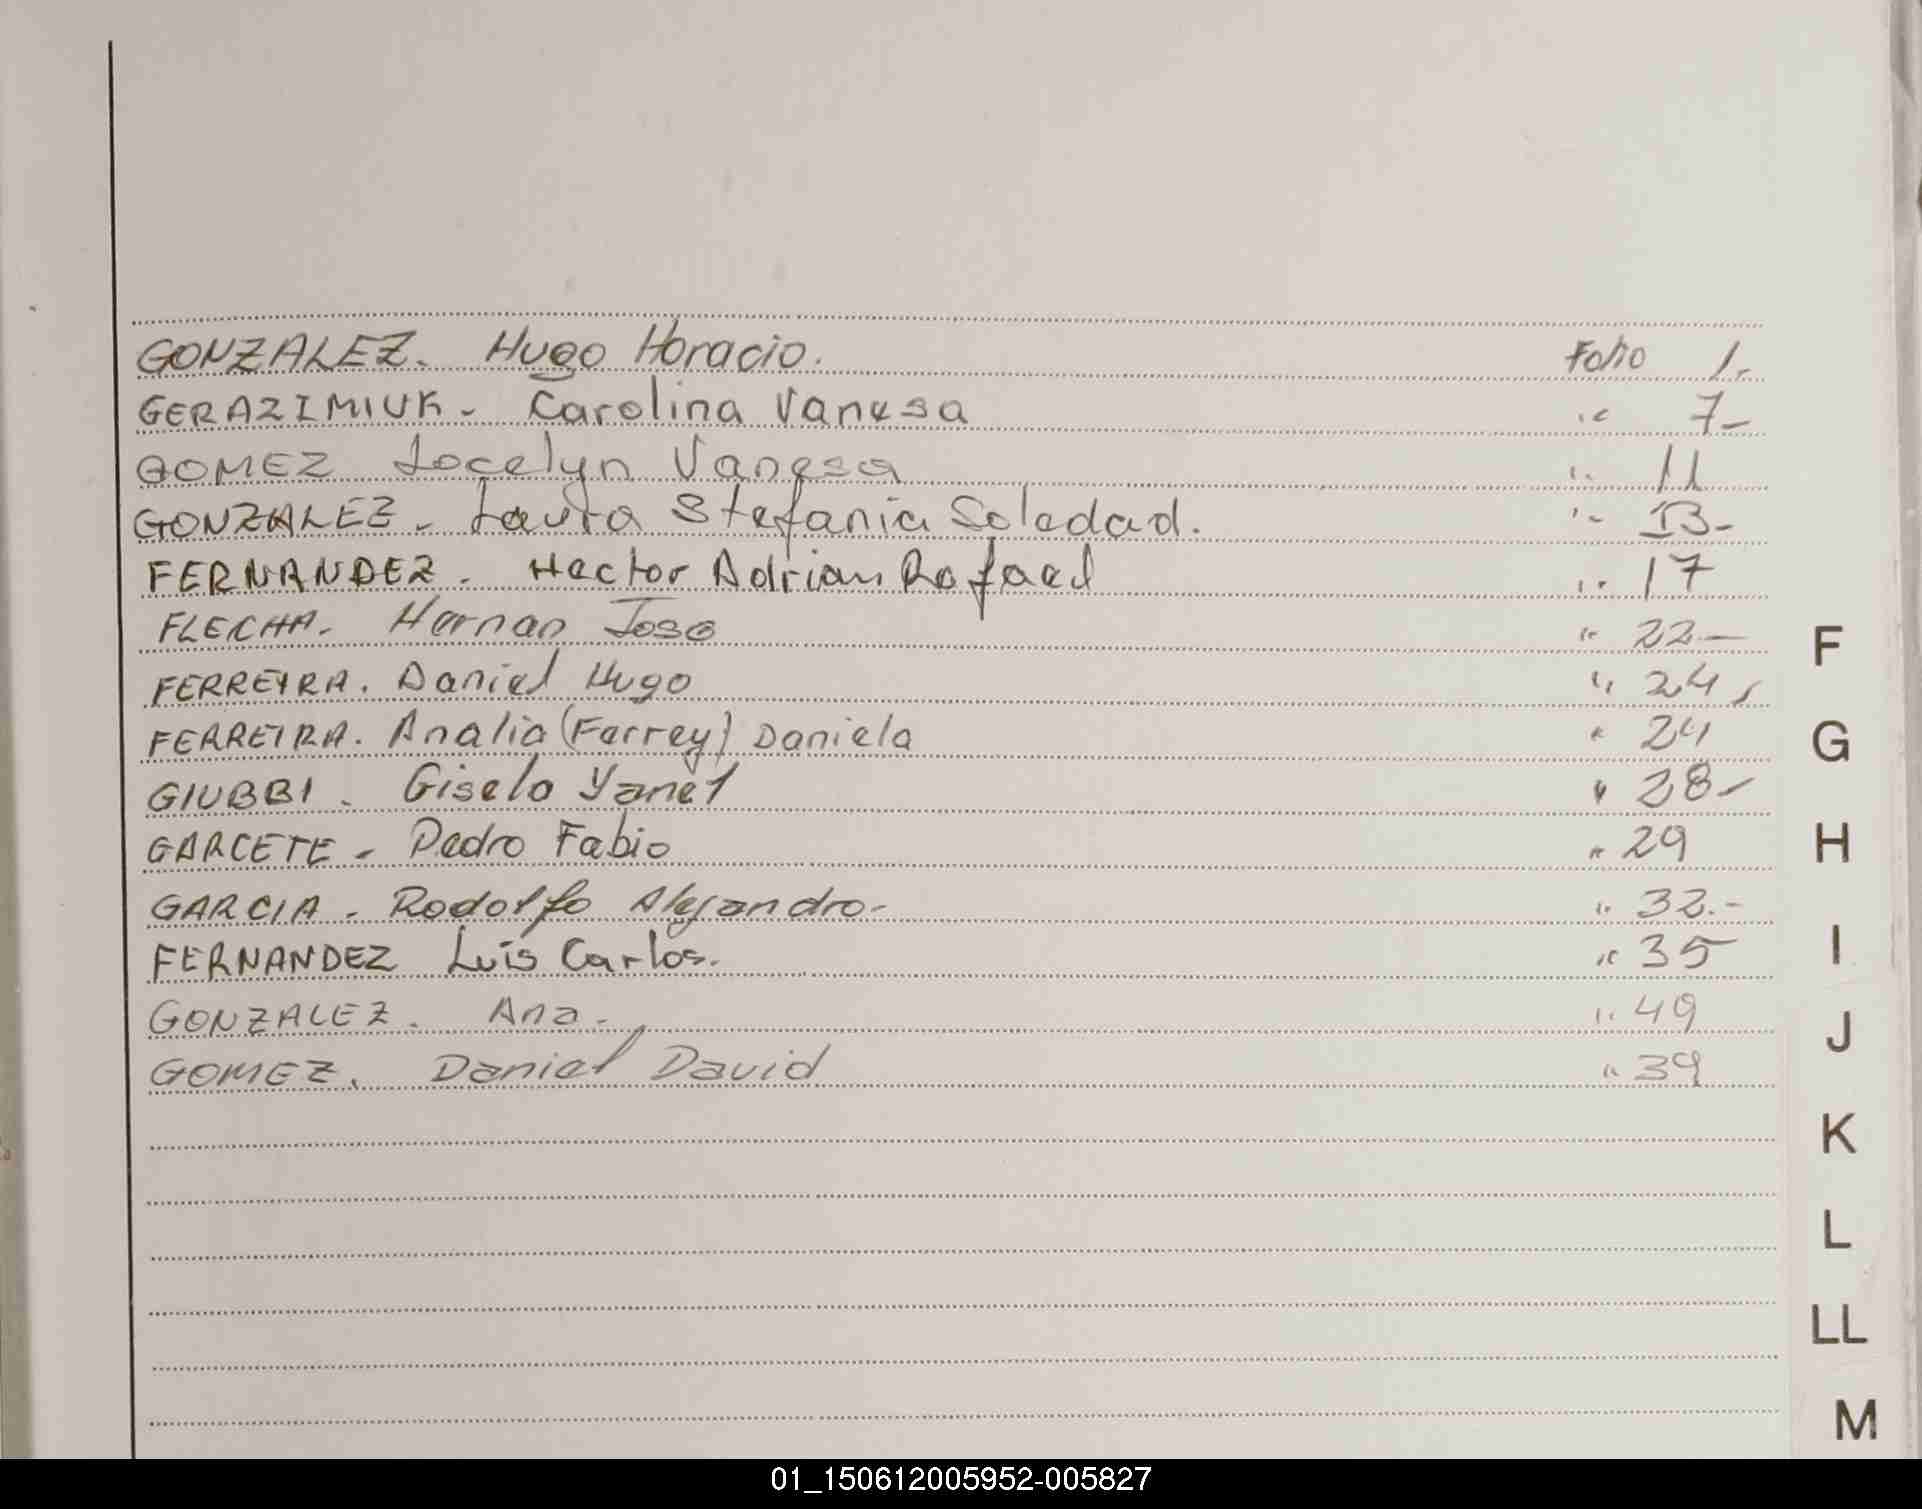 GONZALEZ. Hugo Horacio. Folio 1.-
GERAZIMIUK - Carolina Vanesa " 7-
GOMEZ Jocelyn Vanesa " 11
GONZALEZ - Laura Stefania Soledad. " 13-
FERNANDEZ. Hector Adrian Rafael " 17
FLECHA. Hernan Jose " 22.-
FERREYRA. Daniel Hugo " 24
FERREIRA. Analia (Ferrey) Daniela " 24
GIUBBI. Gisela Yanet " 28-
GARCETE - Pedro Fabio " 29
GARCIA. Rodolfo Alejandro- " 32.-
FERNANDEZ Luis Carlos. " 35
GONZALEZ. Ana- " 49
GOMEZ. Daniel David " 39
F
G
H
I
J
K
L
LL
M
01_150612005952-005827